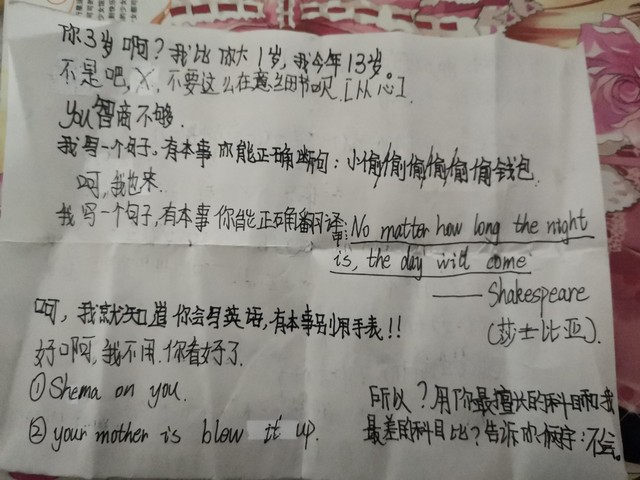 你3岁啊?我比你大1岁,我今年13岁。
不是吧,X,不要这么在意细节呗[从心].
You智商不够.
我写一个句子,有本事你能正确断句:小偷/偷/偷/偷/偷/偷钱包.
呵,我也来.
我写一个句子,有本事你能正确翻译:No matter how long the night
is, the day will come
—— Shakespeare
(莎士比亚).
呵,我就知道你会写英语,有本事别用手表!!
好啊,我不用.你看好了.
①Shema on you.
②your mother is blow it up.
所以?用你最擅长的科目和我
最差的科目比?告诉你俩字:不会。